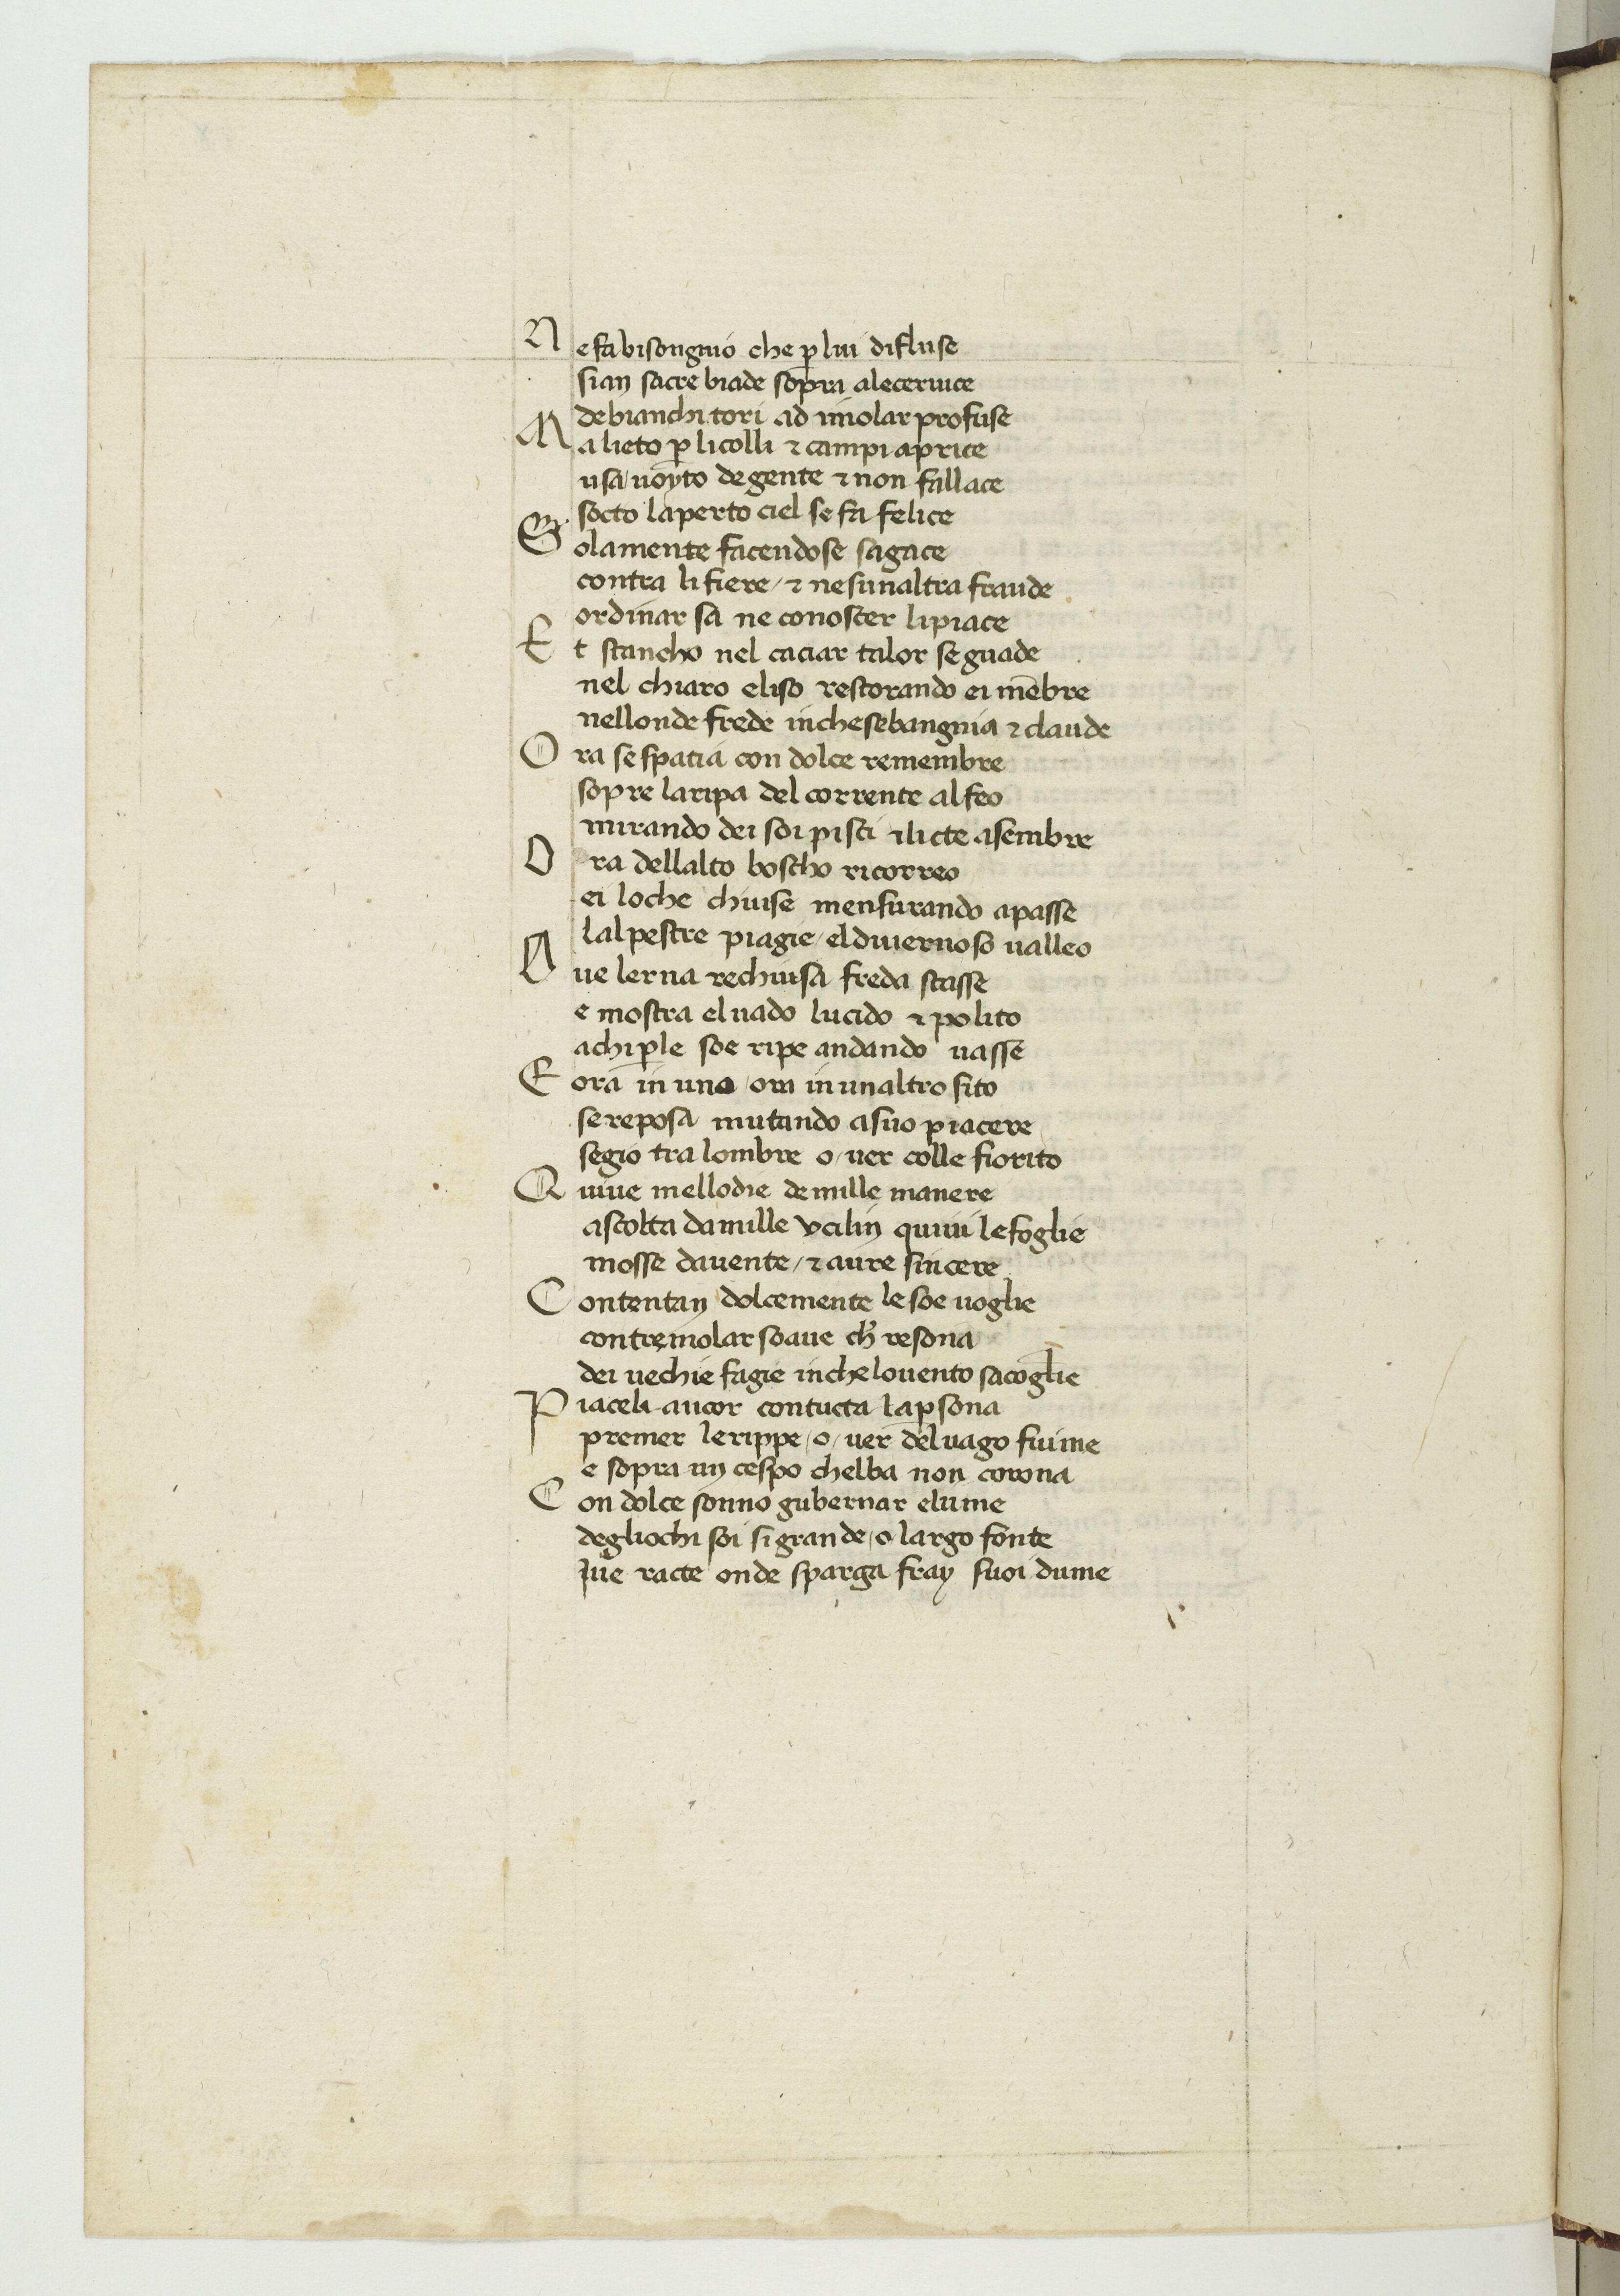 Ne fa bisongnio che ꝑ lui difluse
sian sacre biade sopra alecernice
de bianchi tori ad imolar profuse
Ma lieto ꝑ li colli & campi aprice
usa uoyto de gente & non fallace
socto laperto ciel se fa felice
Solamente facendose sagace
contra li fiere / & nesunaltra fraude
ordinar sa ne conoscer li piace
Et stancho nel caciar talor seguade
nel chiaro eliso restorando ei mēbre
nellonde frede in che se bangnia & claude
Ora se spatia con dolce remembre
sopre la ripa del corrente alfeo
mirando dei soi pisci & licte asembre
Ora dellalto boscho ricorreo
ei loche chiuse mensurando apasse
lalpestre piagie / el diuernoso ualleo
Oue lerna rechiusa freda stasse
e mostra el uado lucido & polito
a chi ꝑ le soe ripe andando uasse
E ora in uno / ora in unaltro sito
se reposa mutando a suo piacere
segio tra lombre o / uer colle fiorito
Quiue mellodie de mille manere
ascolta da mille vcilin quiui le foglie
mosse da uente / & aure sincere
Contentan dolcemente le soe uoglie
con tremolar soaue ch̄ resona
dei uechie fagie in che lo uento sacoglie
Piaceli ancor con tucta la ꝑsona
premer le rippe / o / uer del uago fiume
e sopra un cespo chelba non corona
Con dolce sonno gubernar elume
degliochi soi si grande / o largo fonte
Iue racte onde sparga fray suoi dume